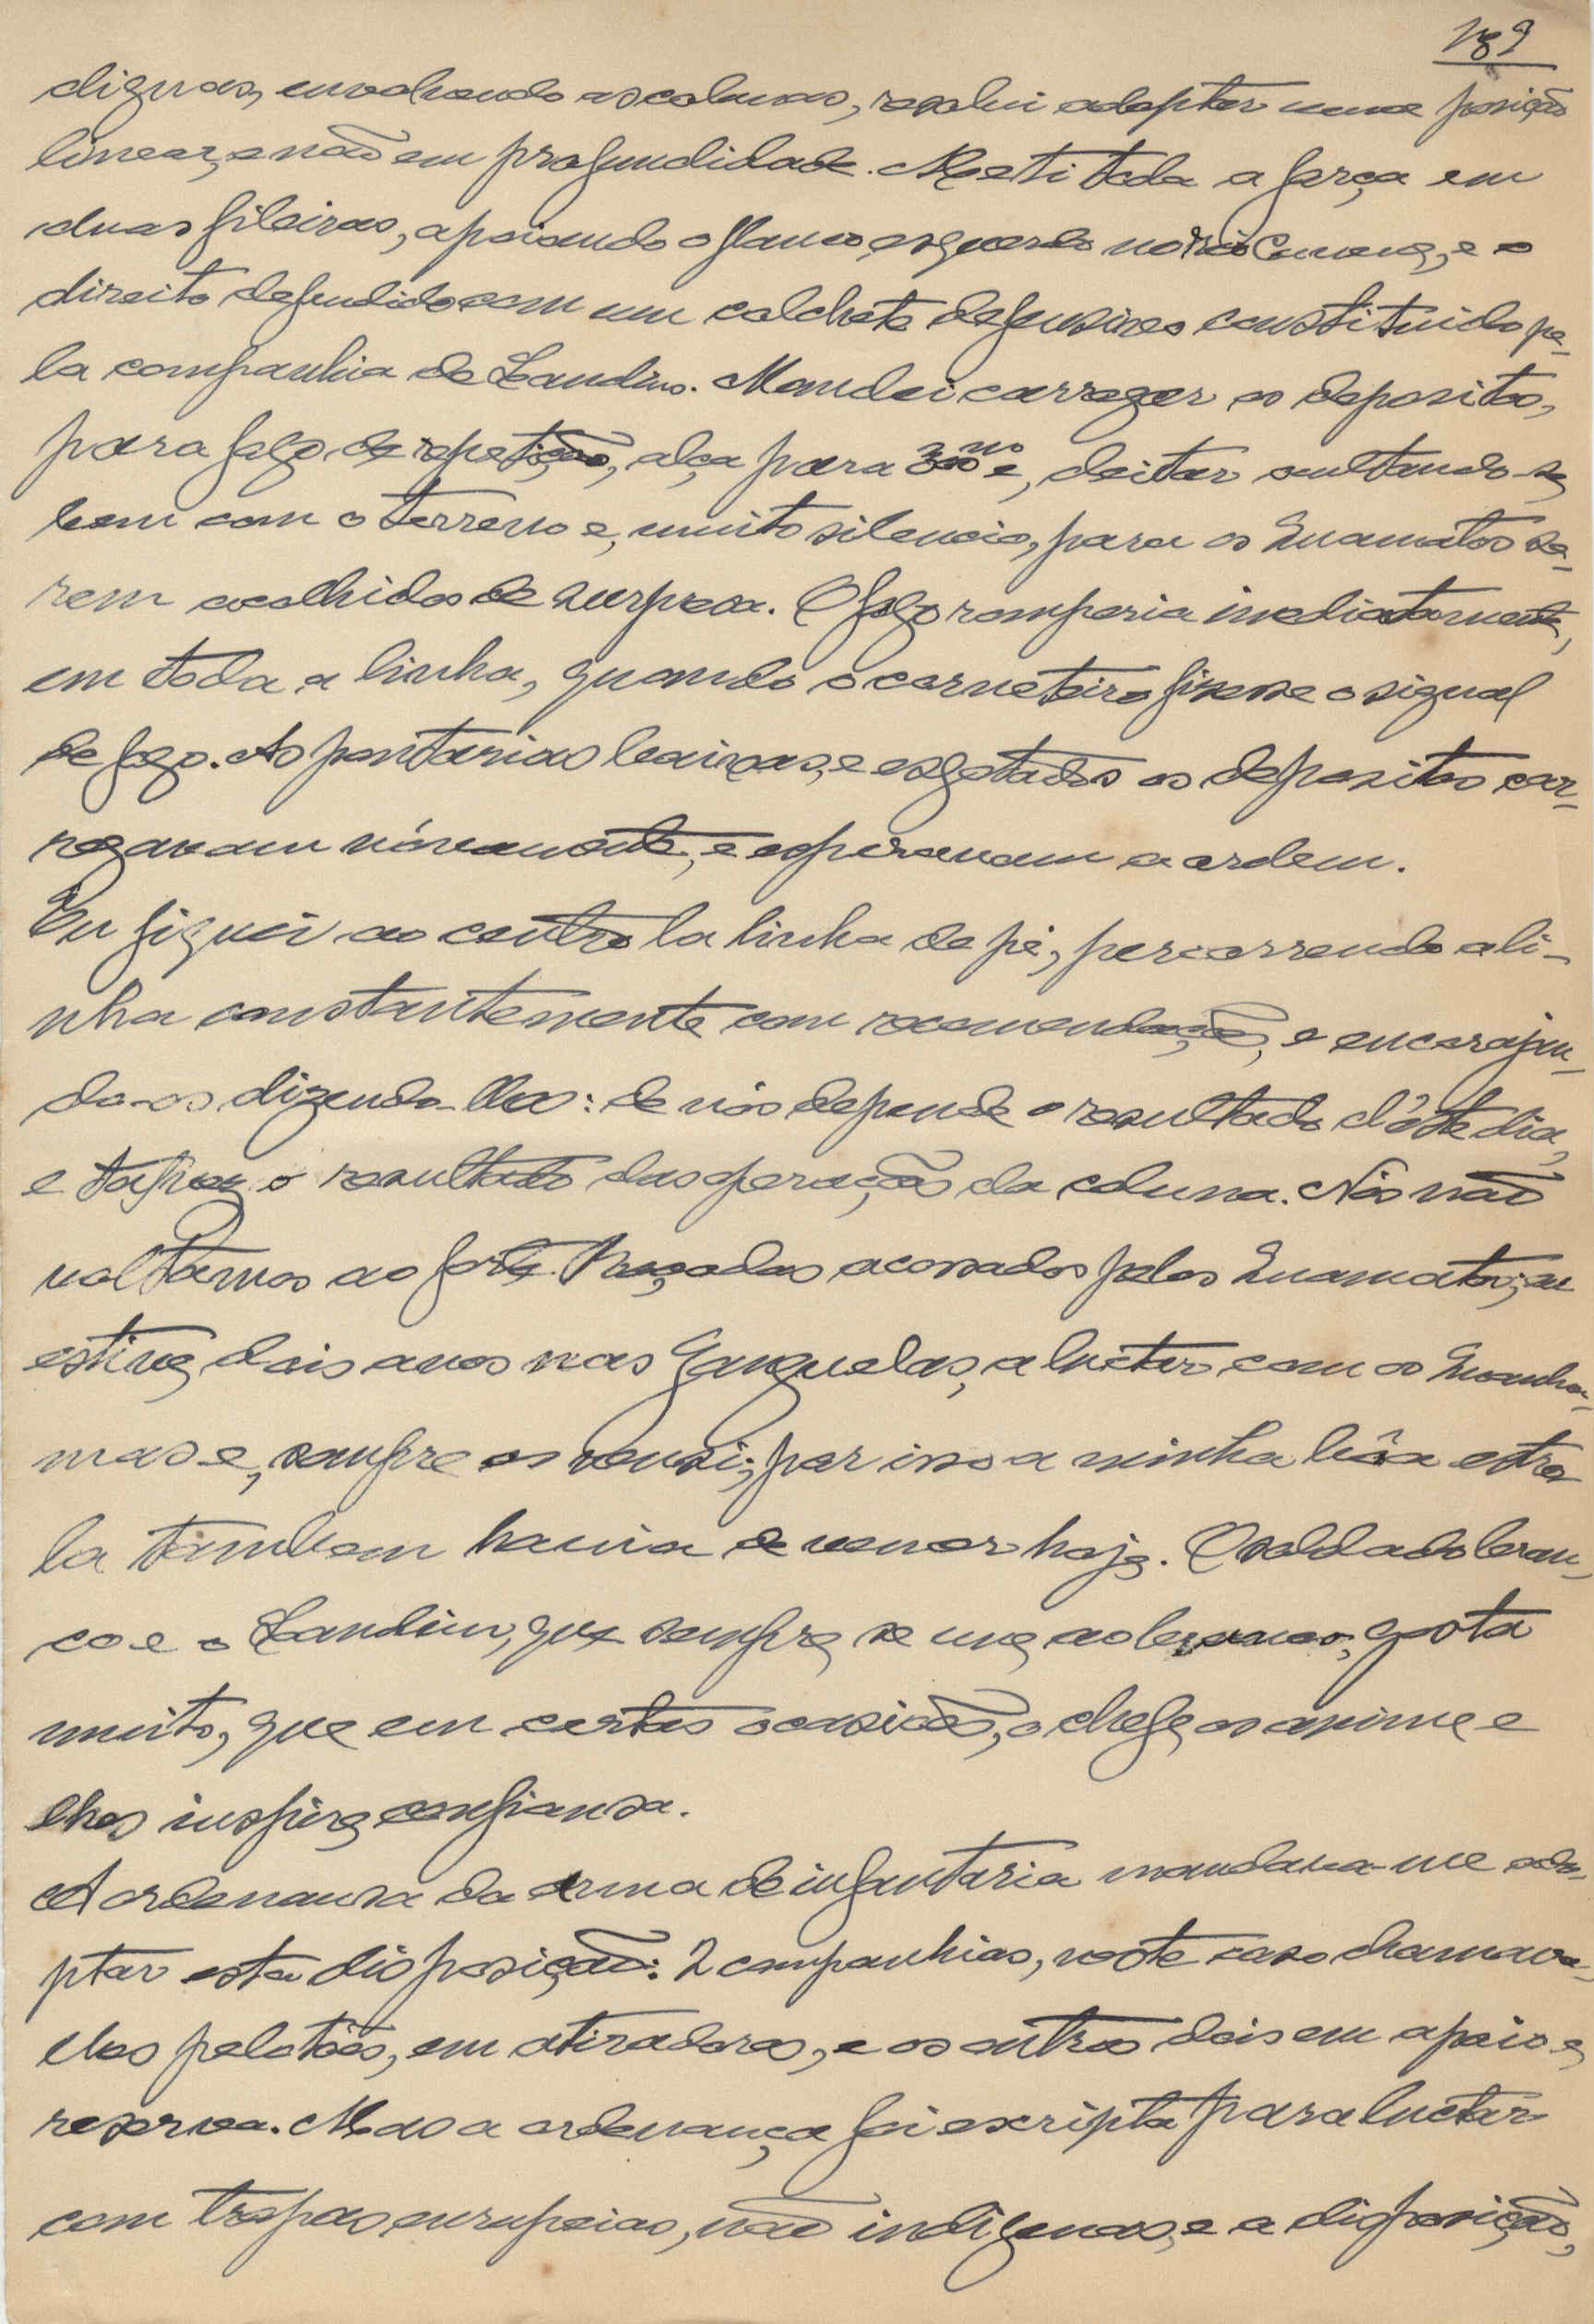 189
digenas, envolvendo as colunas, resolvi adoptar uma posição
linear, e não em profundidade. Meti toda a força em
duas fileiras, apoiando o flanco esquerdo no rio Cunene, e o
direito defendido com um colchete defensivo constituido pe-
la companhia de Landins. Mandei carregar os depositos,
para fogo de repetição, alça para 300 e, deitar ocultando-se
bem com o terreno e, muito silencio, para os Cuamatos se-
rem acolhidos de surpresa. O fogo romperia imediatamente,
em toda a linha, quando o corneteiro fizesse o signal
de fogo. As pontarias baixas, e esgotados os depositos car-
regavam nóvamente, e esperavam a ordem.
Eu fiquei ao centro la linha de pé, percorrendo a li-
nha constantemente com recomendações, e encorajan-
do-os dizendo-lhes: de nós depende o resultado d'este dia,
e talvez o resultado das operações da coluna. Nós não
voltamos ao forte Roçadas acossados pelos Cuamatos; eu
estive dois anos nas Ganguelas, a luctar com os Cuanha-
mas e, sempre os vensi; por isso a minha bôa estre-
la tambem havia de vencer hoje. O soldado bran-
co e o Landim, que sempre se une ao branco, gosta
muito, que em certas ocasiões, o chefe os anime e
lhes inspire confiansa.
A ordenansa da arma de infantaria mandava-me ado-
ptar esta disposição: 2 companhias, neste caso chamava-
lhes pelotões, em atiradores, e os outros dois em apoio e
reserva. Mas a ordenança foi escripta para luctar
com tropas europeias, não indigenas, e a disposição,